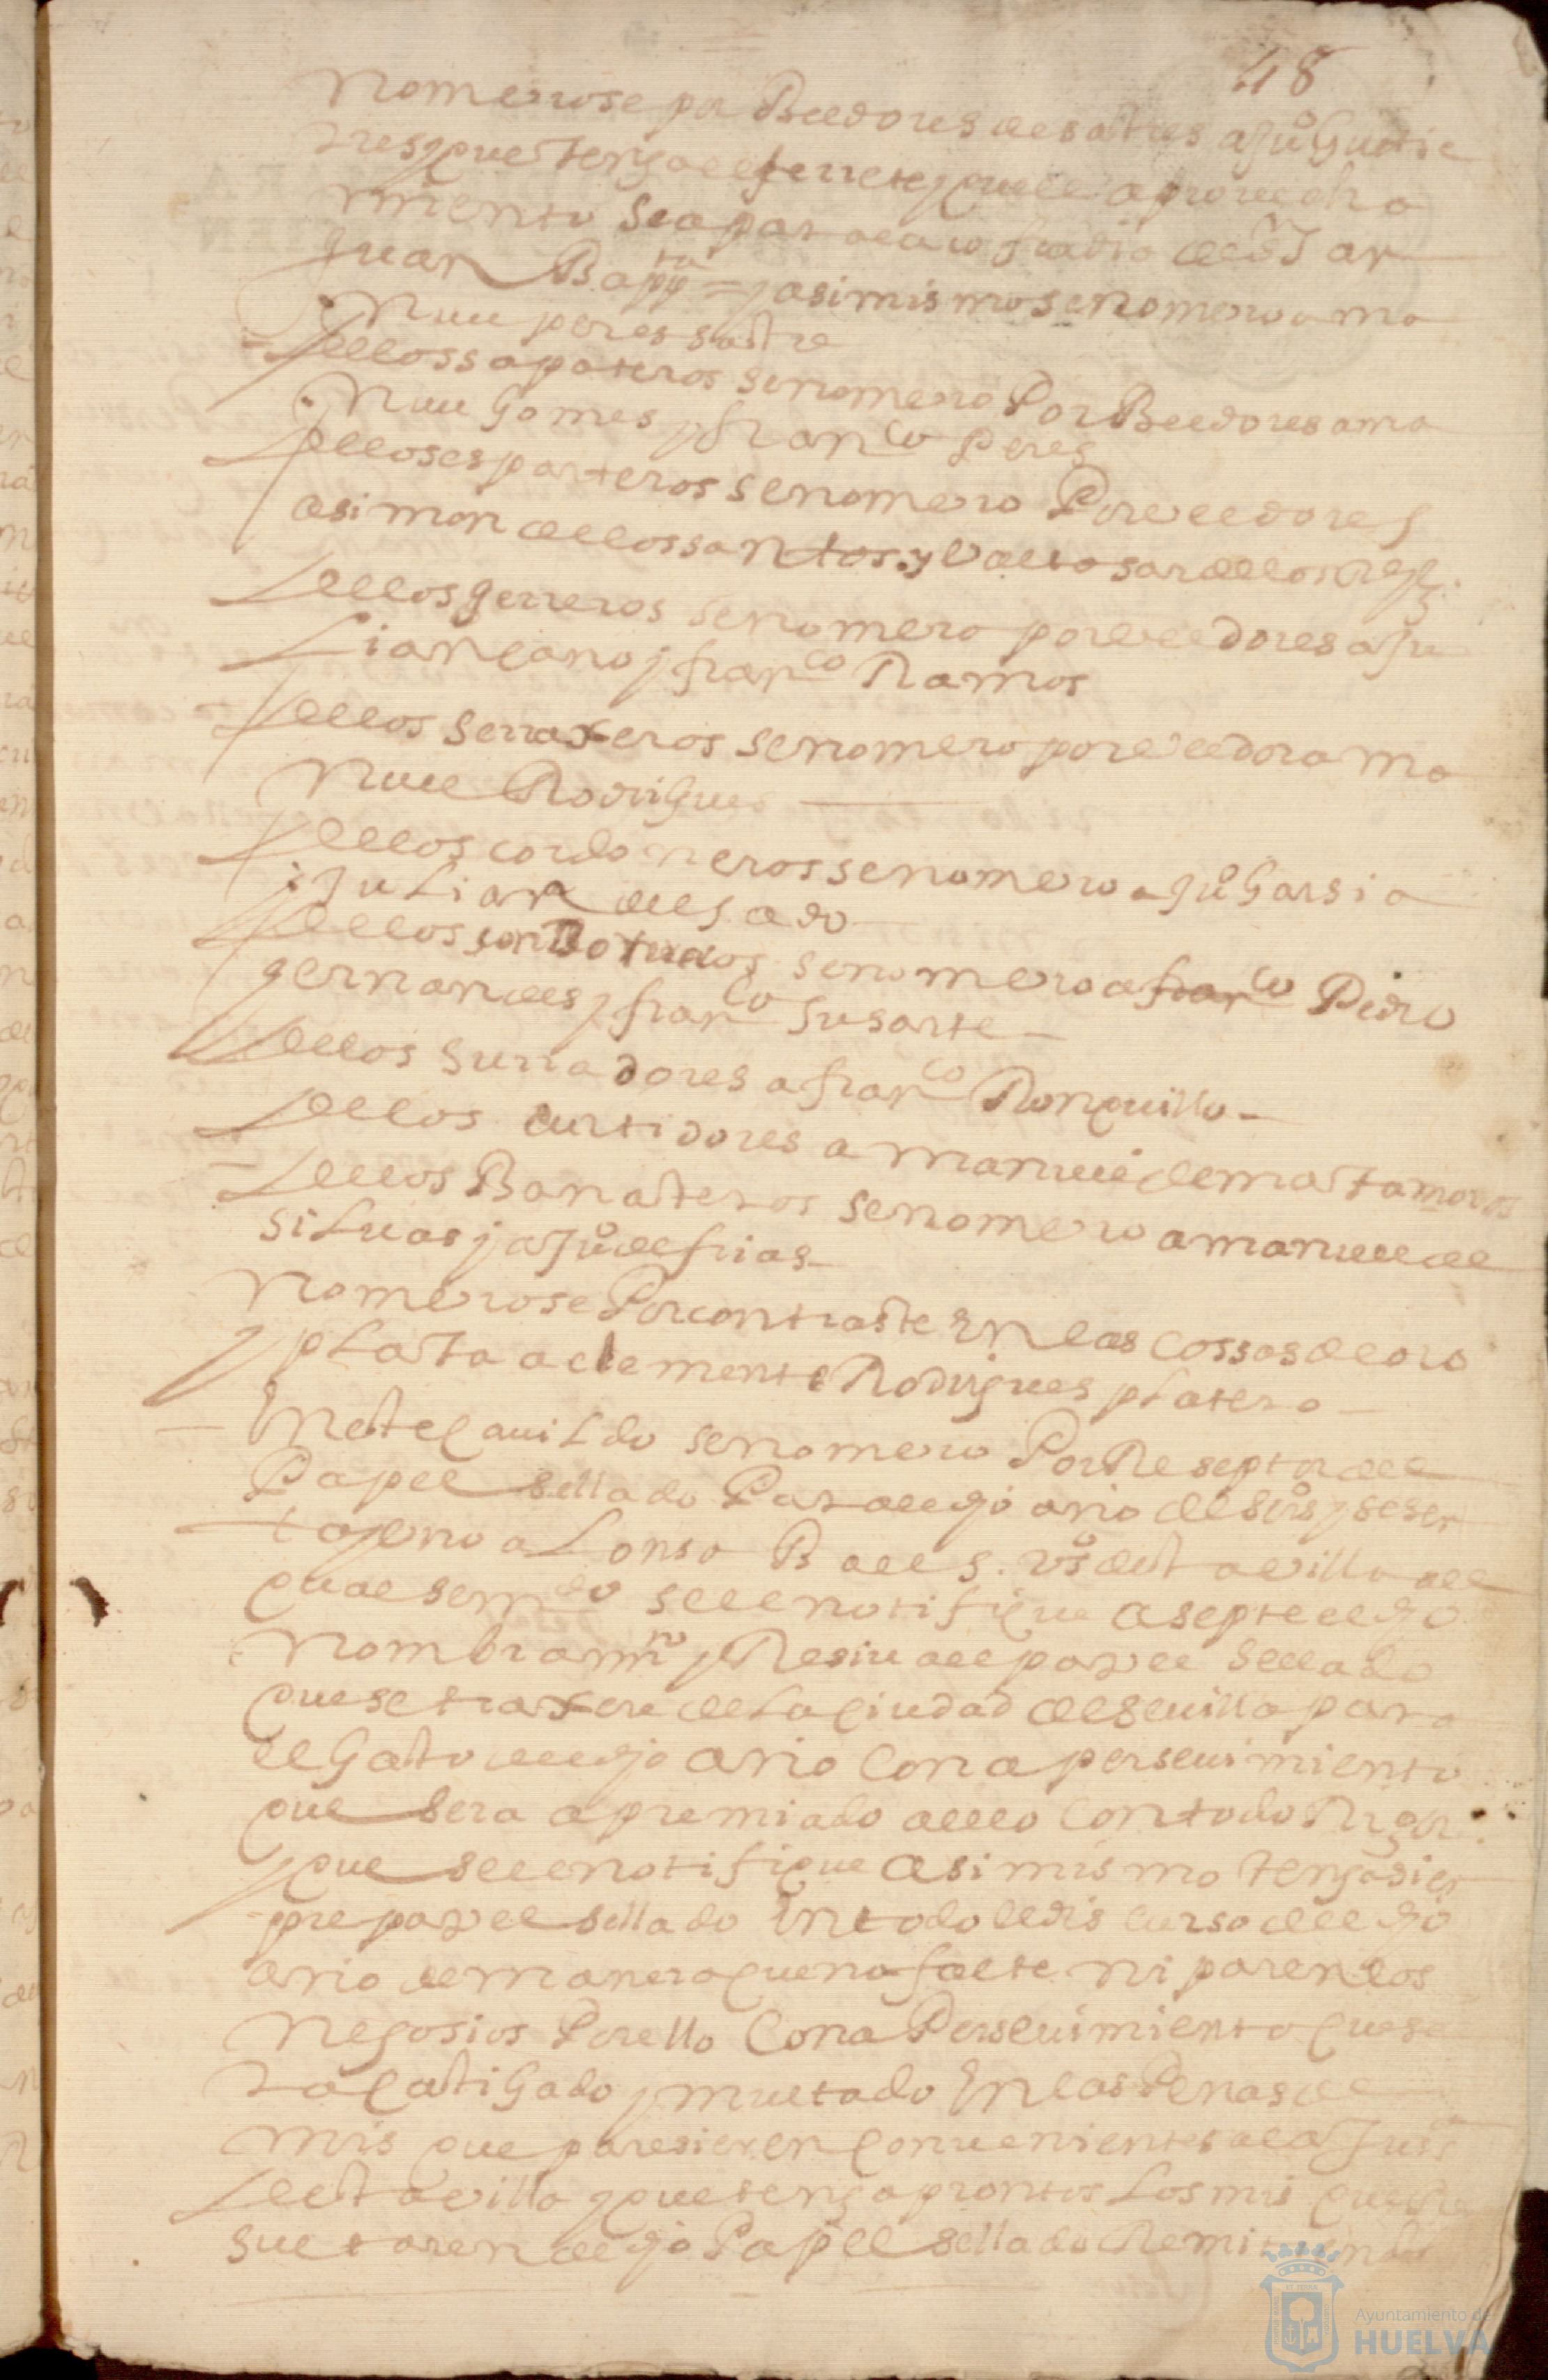 48
nomerose por Beedores de sastres a Juº Gutie
rres que tenga el ferrete y que el aprovecha
miento sea para la cofradia de Sr San
Juan Bapta = y asimismo se nomero a ma
nuel peres sastre
de los sapateros se nomero Por Beedores a ma
nuel Gomes y franco peres
de los esparteros se nomero Por veedores
a simon de los santos y valtasar de los Reyes
de los gerreros se nomero por veedores a Ju
Liançano y franco Ramos
de los serraxeros se nomero por veedor a ma
nuel Rodrigues
de los cordoneros se nomero a Juº Garsia
i Julian delgado
de los se nomero a franco Pedro
gernandes y franco susarte
de los surradores a franco Ronquillo
de los curtidores a manuel de matamoros
de los Banasteros se nomero a manuel de
siluas y a Juº de frias
nomerose Por contraste En las cossas de oro
y plata a clemente Rodrigues platero
En este cauildo se nomero Por Reseptor del
Papel sellado Para el dho año de seisos y sesen
ta y uno a Lonso Baes vº desta villa al
qual se mdo se le notifique asepte el dho
nombramto y Resiua el papel sellado
que se traxere de la ciudad de seuilla para
el Gasto del dho año con apersevimiento
que sera apremiado a ello con todo Rigor
y que se le notifique asimismo tenga siem
pre papel sellado En todo el discurso del dho
año de manera que no falte ni paren los
negosios Por ello con aPersevimiento que se
ra castigado y multado En las Penas de
mrs que paresieren convenientes a la Justa
desta villa y que tenga prontos Los mrs que re
sultaren de dho Papel sellado Remitiendo
Ayuntamiento de
HUELVA